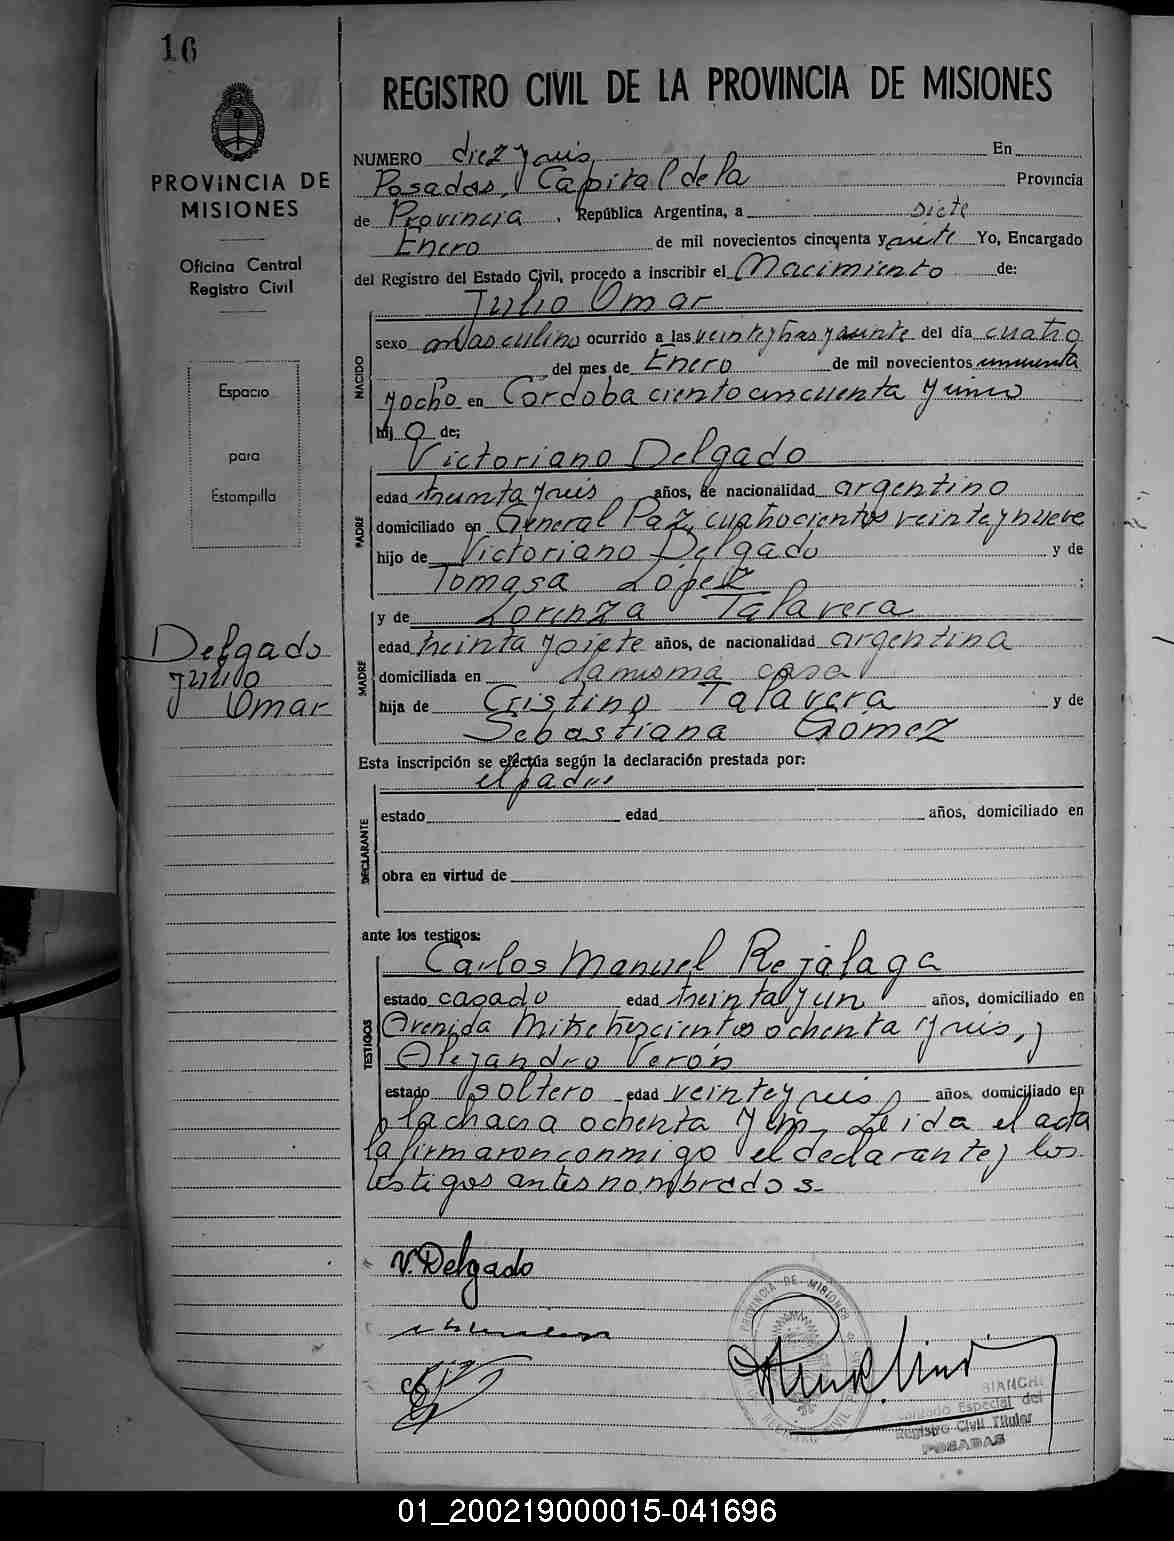 16
REGISTRO CIVIL DE LA PROVINCIA DE MISIONES
PROVINCIA DE
MISIONES
Oficina Central
Registro Civil
Espacio
para
Estampilla
Delgado
Julio
Omar
NUMERO diez y seis, En
Posadas, Capital de la Provincia
de Provincia, República Argentina, a siete
Enero de mil novecientos cincuenta y Yo, Encargado
del Registro del Estado Civil, procedo a inscribir el Nacimiento de:
Julio Omar
NACIDO
sexo masculino ocurrido a las veinte y tres y veinte del día cuatro
del mes de Enero de mil novecientos cincuenta
y ocho en Córdoba ciento cincuenta y cinco
hij o de;
Victoriano Delgado
PADRE
edad treinta y seis años, de nacionalidad argentino
domiciliado en General Paz, cuatrocientos veinte y nueve
hijo de Victoriano Delgado y de
Tomasa López ;
y de Lorenza Talavera
MADRE
edad treinta y siete años, de nacionalidad argentina
domiciliada en la misma casa
hija de Cristino Talavera y de
Sebastiana Gómez
Esta inscripción se efectúa según la declaración prestada por:
el padre
DECLARANTE
estado edad años, domiciliado en
obra en virtud de
ante los testigos:
Carlos Manuel Rejálaga
TESTIGOS
estado casado edad treinta y un años, domiciliado en
Avenida Mitre trescientos ochenta y seis, y
Alejandro Verón
estado soltero edad veinte y seis, años, domiciliado en
la chacra ochenta y un, Leida el acta
la firmaron conmigo el declarante y los
testigos antes nombrados.-
V. Delgado
PROVINCIA DE MISIONES
REGISTRO CIVIL
BIANCHI
Especial del
Registro Civil Titular
POSADAS
01_200219000015-041696